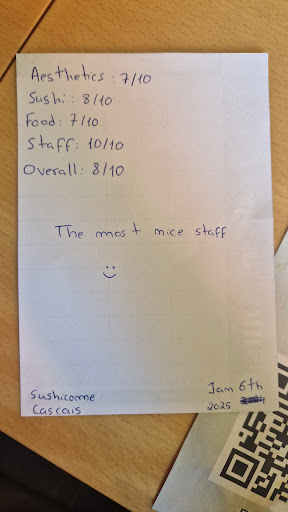 Aesthetics: 7/10
Sushi: 8/10
Food: 7/10
Staff: 10/10
Overall: 8/10
The most nice staff
:)
Sushicome
Cascais
Jan 6th
2025